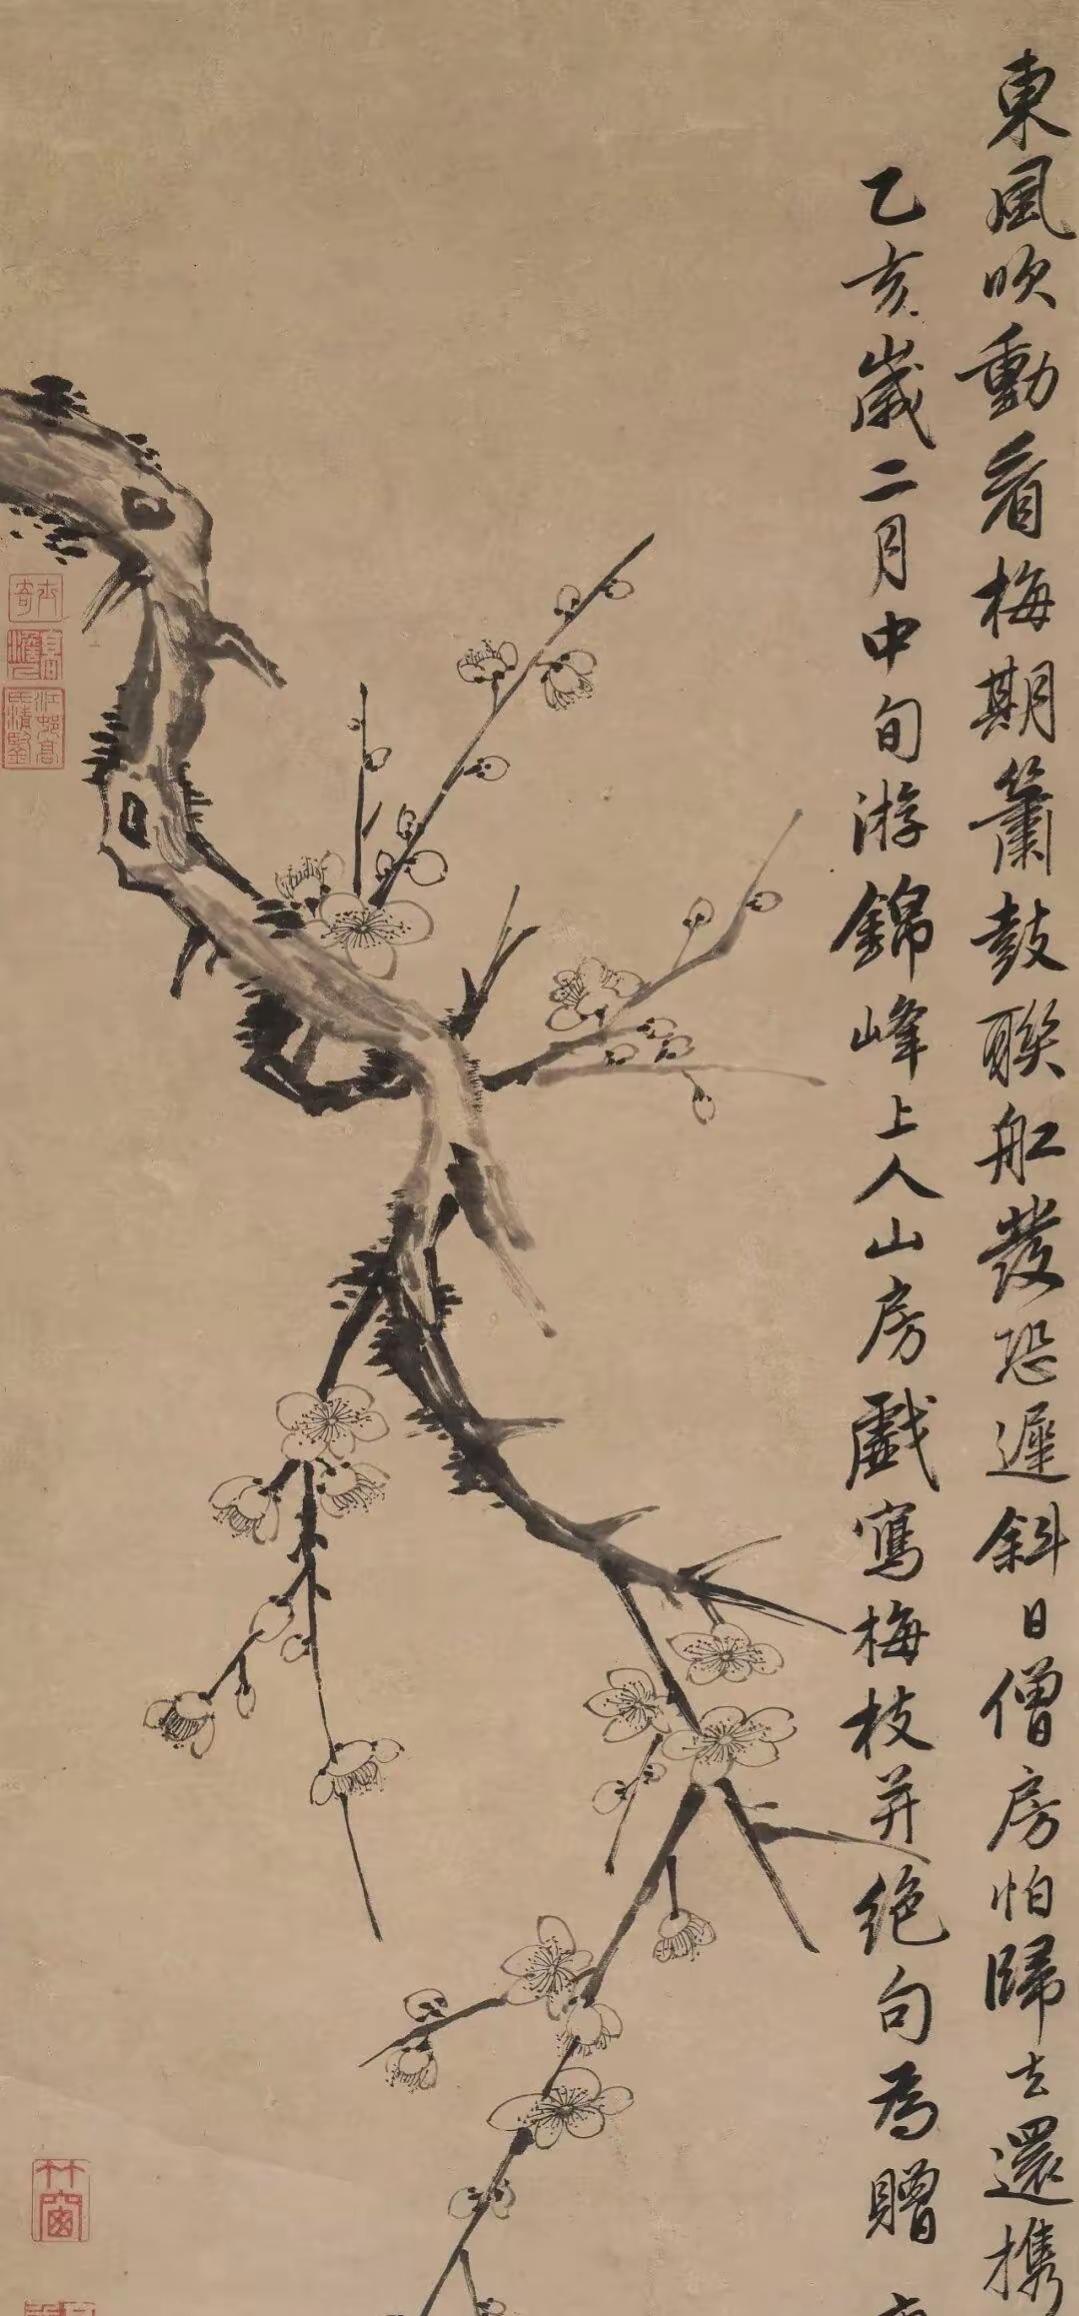 東風吹動看梅期簫鼓聯船發恐遲斜日僧房怕歸去還攜
乙亥歲二月中旬游錦峰上人山房戲寫梅枝并絕句為贈
竹窗